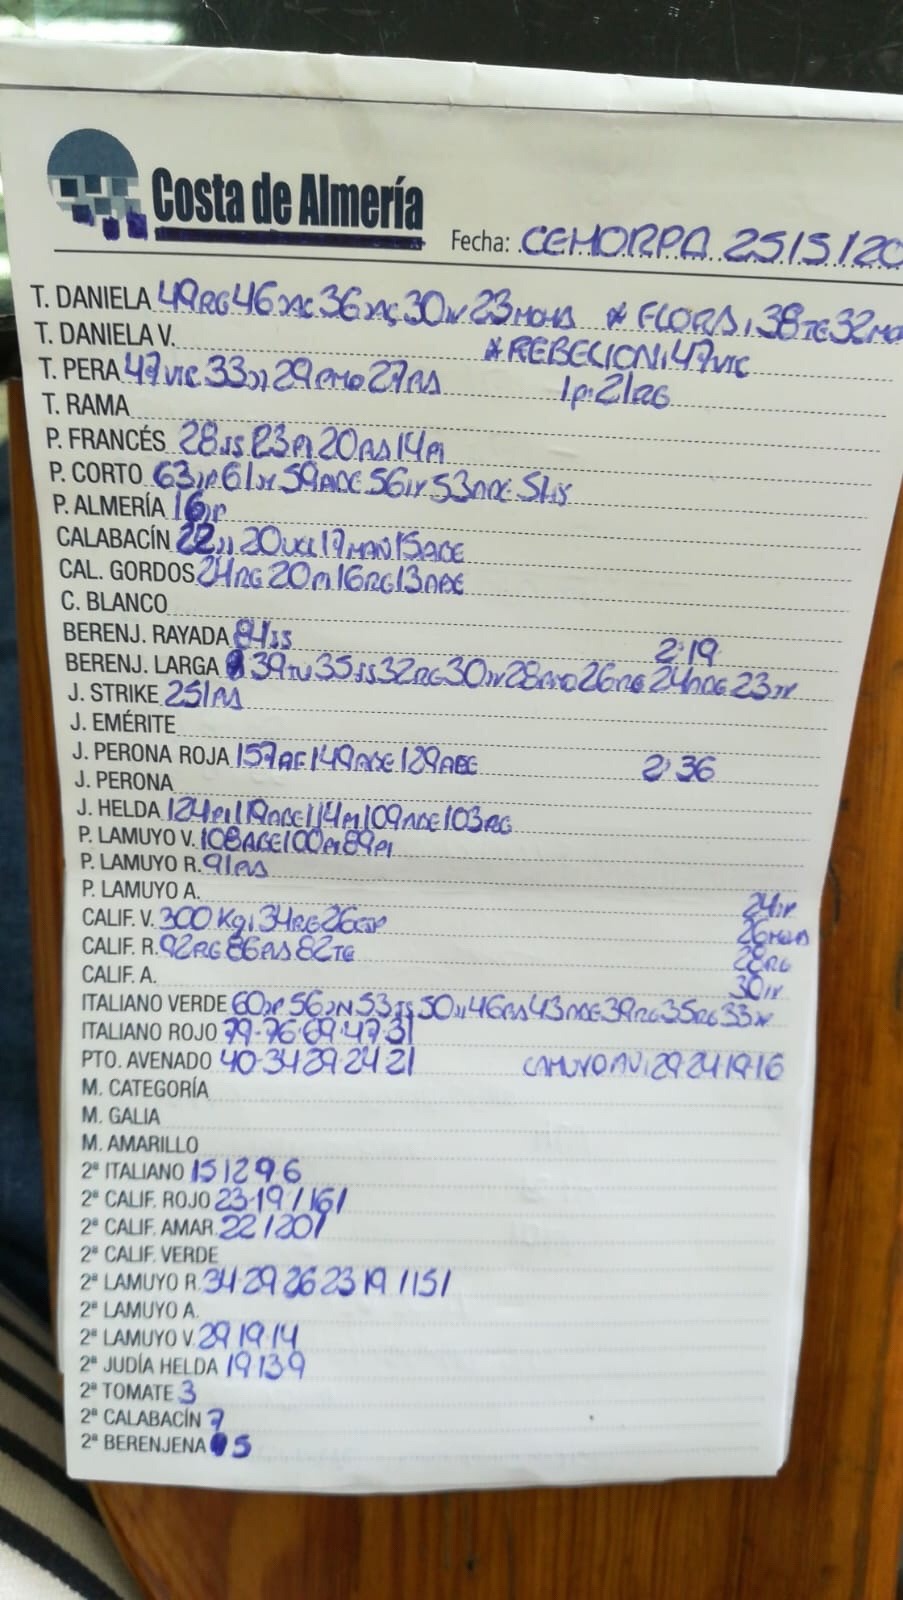 Costa de Almería
Fecha: CEHORPA 25/5/20
T. DANIELA 49RG 46 36 30 23 * FLORA: 38TE 32MO
T. DANIELA V. * REBELION: 47VIC
T. PERA 47VIC 33JJ 29 27AS 1p: 21RG
T. RAMA
P. FRANCÉS 28JS 23PI 20AS 14PI
P. CORTO 63JP 61 59ADE 56 53ADE 51
P. ALMERÍA 16JP
CALABACÍN 22JJ 20 17MAN 15ADE
CAL. GORDOS 24RG 20PI 16RG 13ADE
C. BLANCO
BERENJ. RAYADA 84SS 2:19
BERENJ. LARGA 39TU 35SS 32RG 30 28 26RG 24ADE 23
J. STRIKE 251AS
J. EMÉRITE
J. PERONA ROJA 157AF 149ADE 129ADE 2:36
J. PERONA
J. HELDA 124PI 119ADE 114PI 109ADE 103RG
P. LAMUYO V. 108ADE 100PI 89PI
P. LAMUYO R. 91AS
P. LAMUYO A. 24JP
CALIF. V. 300 Kg: 34RG 26 26
CALIF. R. 92RG 86AS 82TE 28RG
CALIF. A. 30
ITALIANO VERDE 60JP 56 53SS 50JJ 46AS 43ADE 39RG 35RG 33
ITALIANO ROJO 79-76-69-47-31
PTO. AVENADO 40-34 29-24 21 LAMUYO AV: 29 24 19-16
M. CATEGORÍA
M. GALIA
M. AMARILLO
2ª ITALIANO 15 12 9 6
2ª CALIF. ROJO 23-19 /16/
2ª CALIF. AMAR. 22 /20/
2ª CALIF. VERDE
2ª LAMUYO R. 34-29 26 23 19 /15/
2ª LAMUYO A.
2ª LAMUYO V. 29 19-14
2ª JUDÍA HELDA 19 13 9
2ª TOMATE 3
2ª CALABACÍN 7
2ª BERENJENA 5